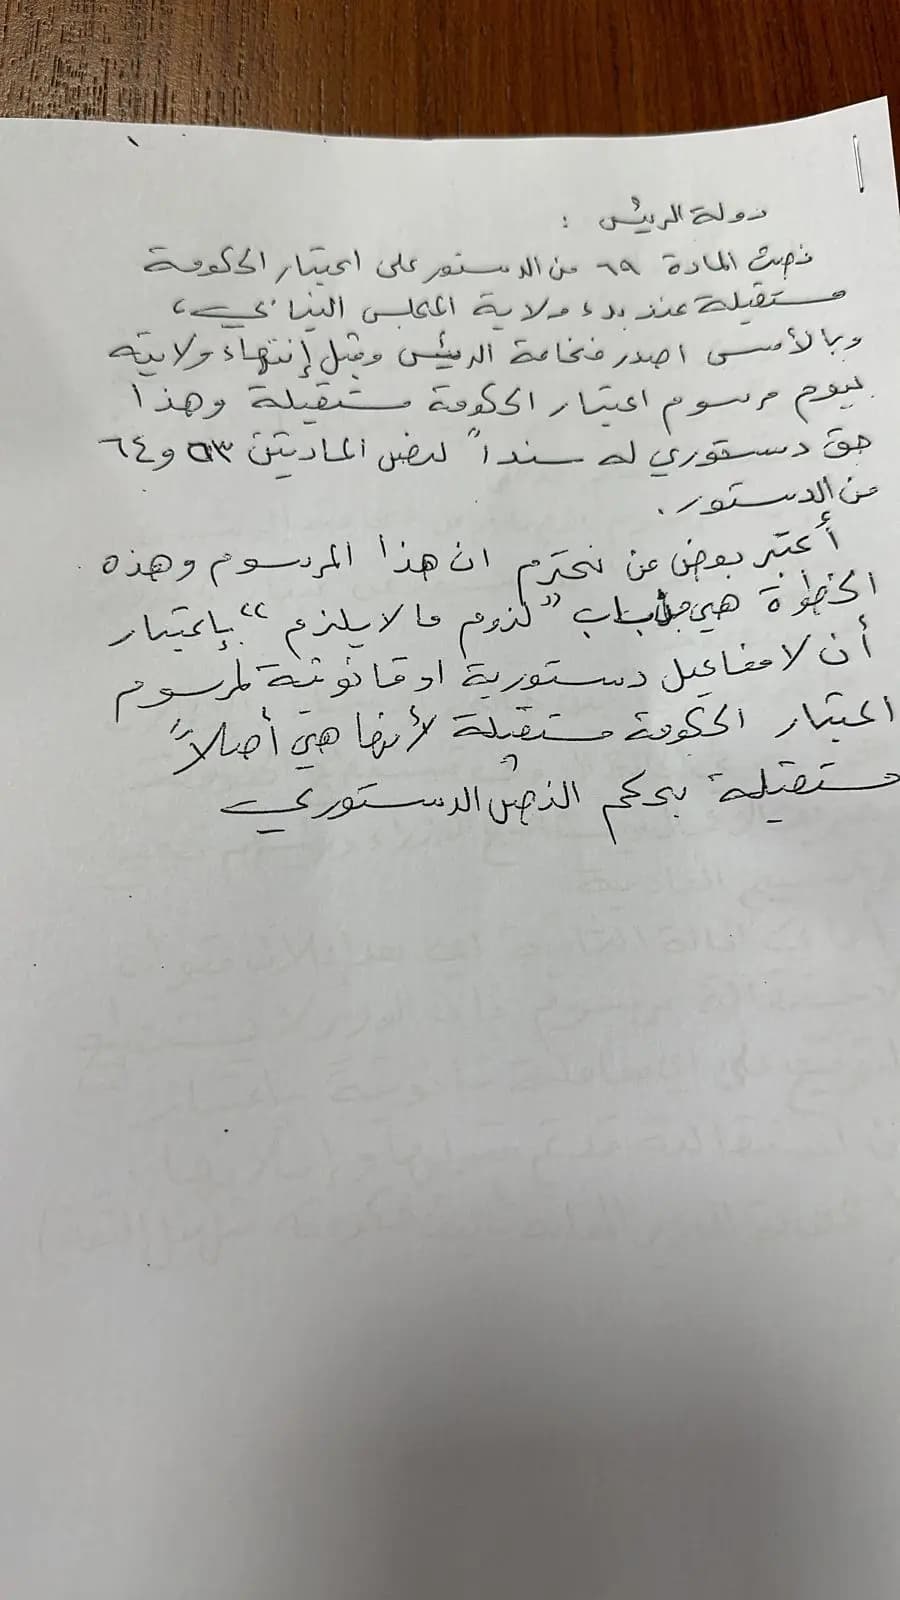 دولة الرئيس :
نصت المادة ٦٩ من الدستور على اعتبار الحكومة
مستقيلة عند بدء ولاية المجلس النيابي،
وبالأمس اصدر فخامة الرئيس وقبل إنتهاء ولايته
بيوم مرسوم اعتبار الحكومة مستقيلة وهذا
حق دستوري له سنداً لنص المادتين ٥٣ و٦٤
من الدستور.
أعتبر بعض من نحترم ان هذا المرسوم وهذه
الخطوة هي من باب "لزوم ما لا يلزم" بإعتبار
أن لا مفاعيل دستورية او قانونية لمرسوم
اعتبار الحكومة مستقيلة لأنها هي أصلاً
مستقيلة بحكم النص الدستوري